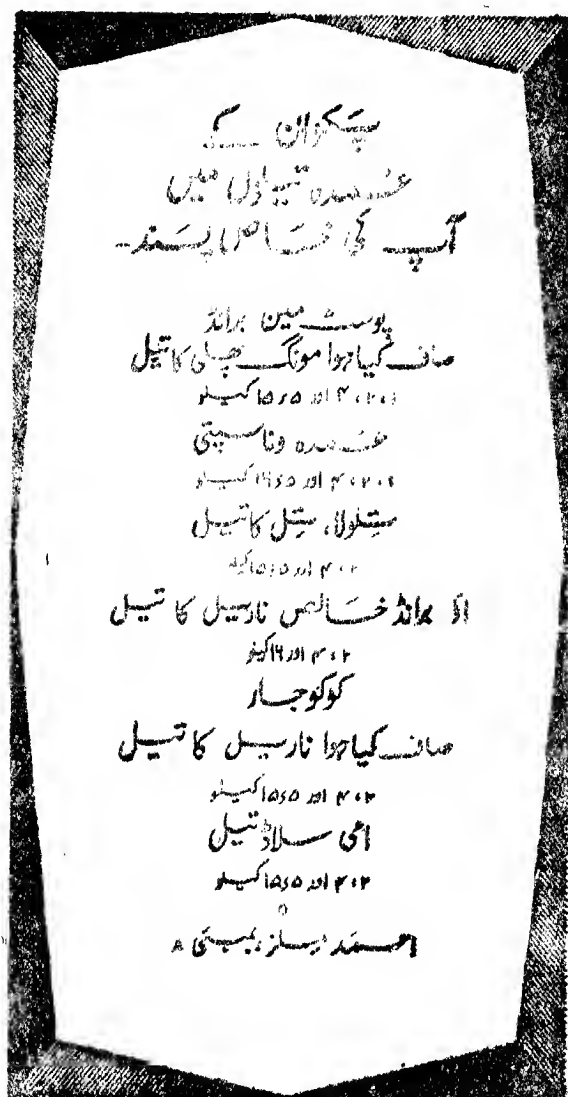 پکوان کے
عمدہ تیلوں میں
آپ کی خاص پسند۔
پوسٹ مین برانڈ
صاف کیا ہوا مونگ پھلی کا تیل
۴ اور ۱۵٫۵ کیلو
عمدہ وناسپتی
۲، ۴ اور ۱۶٫۵ کیلو
تیل کا تیل
۲، ۴ اور ۱۵٫۵ کیلو
برانڈ خالص ناریل کا تیل
۲، ۴ اور ۱۶ کیلو
کوکوجار
صاف کیا ہوا ناریل کا تیل
۲، ۴ اور ۱۵٫۵ کیلو
سلاڈ تیل
۲، ۴ اور ۱۵٫۵ کیلو
احمد ملز، بمبئی ۸